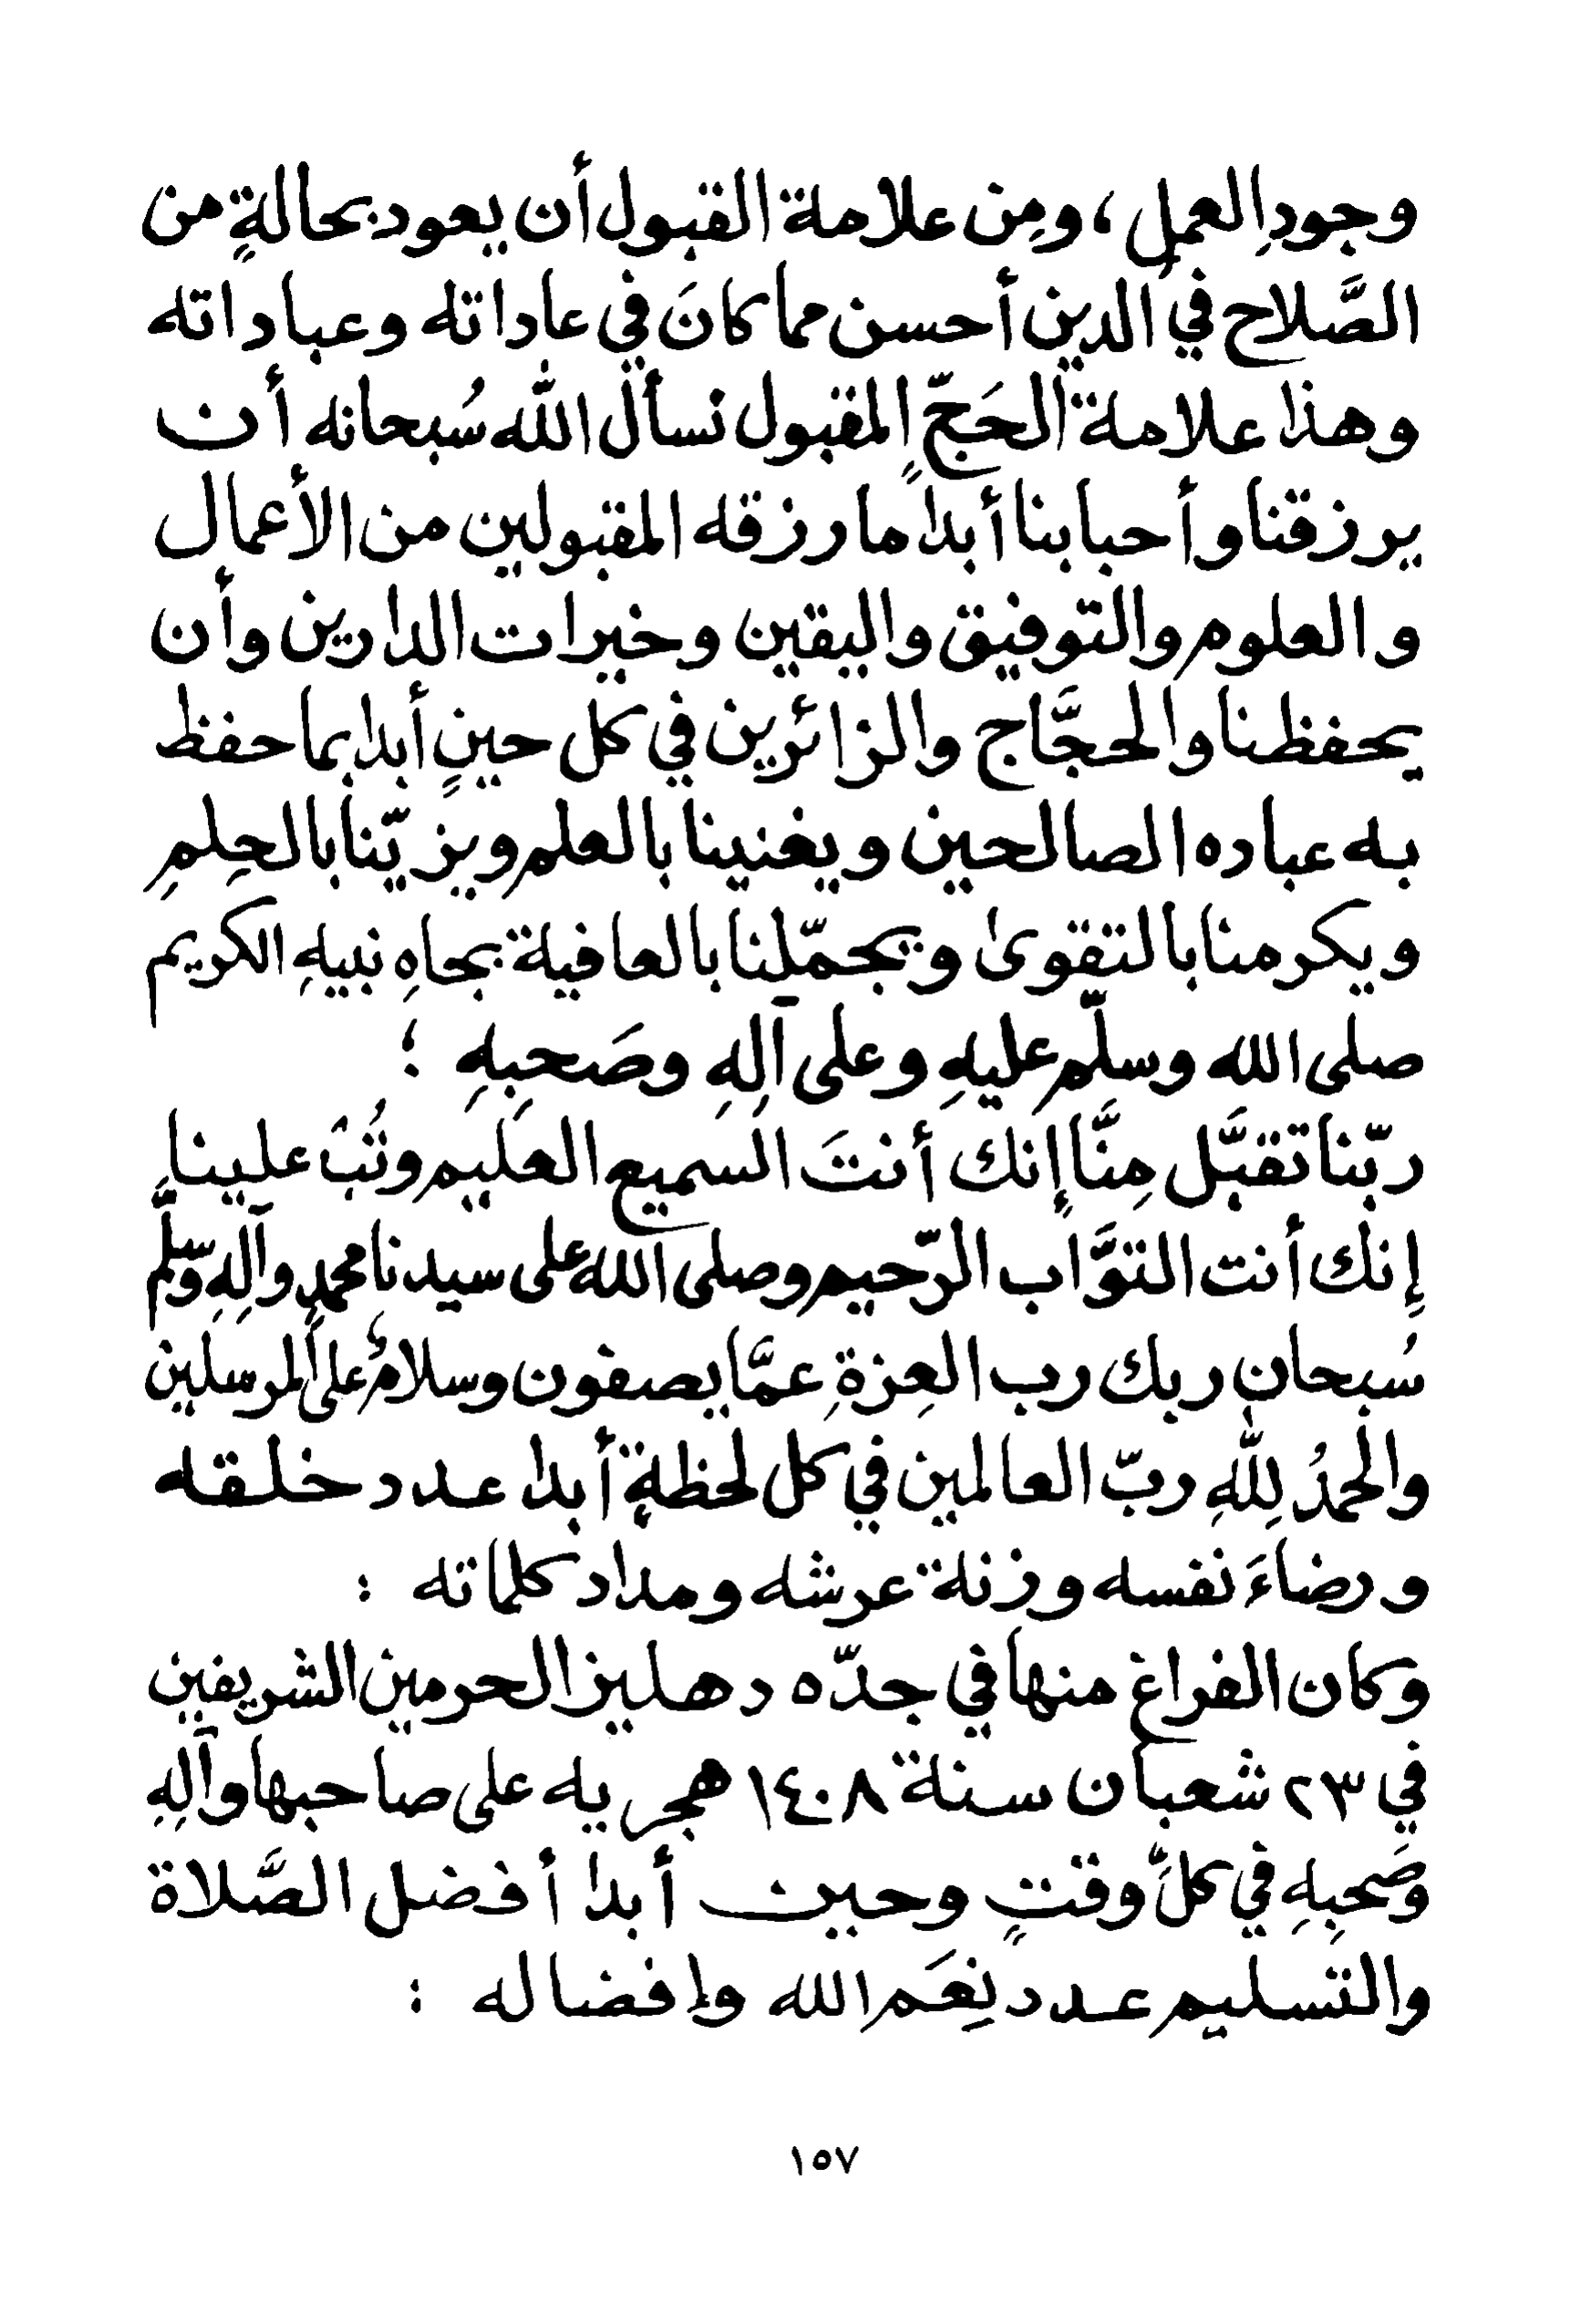 وجودِ العمل ، ومِن علامة القبول أن يعود بحالةٍ من
الصَّلاح في الدين أحسن مما كانَ في عاداته وعباداته
وهذا علامة الحَجّ المقبول نسأل الله سُبحانه أن
يرزقنا وأحبابنا أبداً ما رزقه المقبولين من الأعمال
والعلوم والتوفيق واليقين وخيرات الدارين وأن
يحفظنا والحجَّاج والزائرين في كل حينٍ أبداً بما حفظ
به عباده الصالحين ويغنينا بالعلم ويزيّنا بالحِلمِ
ويكرمنا بالتقوى ويجمّلنا بالعافية بجاهِ نبيهِ الكريم
صلى الله وسلّم عليهِ وعلى آلهِ وصَحبهِ ؛
ربّنا تقبَّل مِنَّا إنك أنتَ السَميع العَليم وتُبْ علينا
إِنك أنت التوَّاب الرّحيم وصلى الله على سيدنا محمدٍ وآلِهِ وسلَّم
سُبحان ربك رب العِزةِ عمَّا يصفون وسلامٌ على المرسلين
والحمدُ لِلّهِ ربّ العالمين في كل لحظةٍ أبدا عدد خلقه
ورضاءَ نفسه وزنة عرشه ومداد كلماته :
وكان الفراغ منها في جدّه دهليز الحرمين الشريفين
في ٢٣ شعبان سنة ١٤٠٨ هجريه على صاحبها وآلِهِ
وصَحبِهِ في كلِّ وقتٍ وحين أبدا أفضل الصَّلاة
والتسليم عدد نِعَم الله وإفضاله :
١٥٧